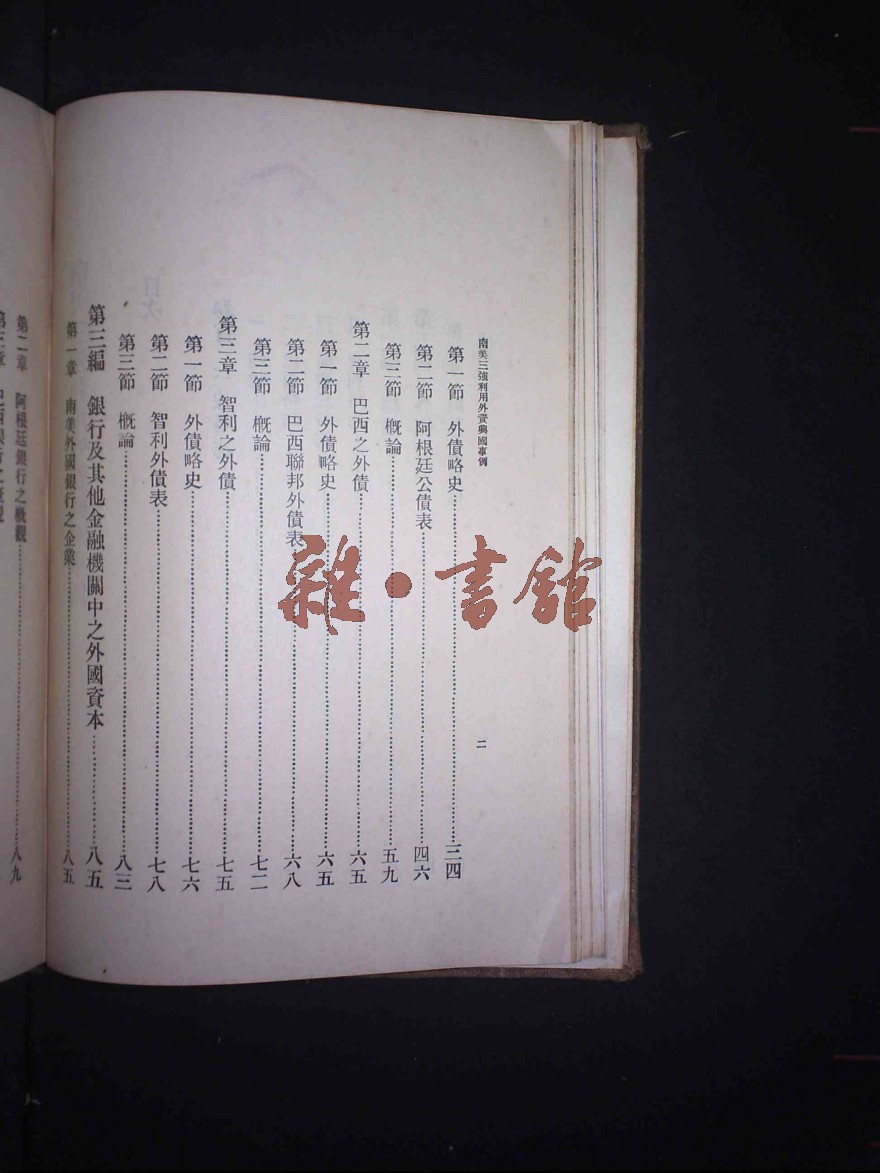 南美三強利用外資興國事例
二
第一節 外債略史……三四
第二節 阿根廷公債表……四六
第三節 概論……五九
第二章 巴西之外債……六五
第一節 外債略史……六五
第二節 巴西聯邦外債表……六八
第三節 概論……七二
第三章 智利之外債……七五
第一節 外債略史……七六
第二節 智利外債表……七八
第三節 概論……八三
第三編 銀行及其他金融機關中之外國資本……八五
第一章 南美外國銀行之企業……八五
第二章 阿根廷銀行之概觀……八九
第三章
雜·書館